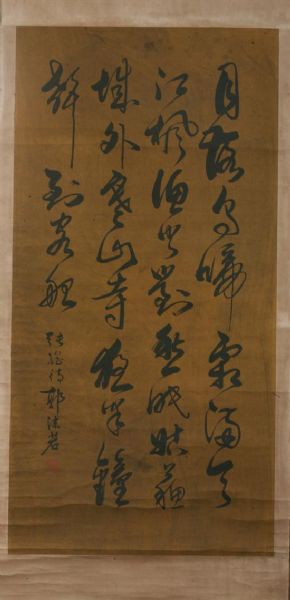 月落烏啼霜滿天
江楓漁火對愁眠姑蘇
城外寒山寺夜半鐘
聲到客船
張繼詩郭沫若